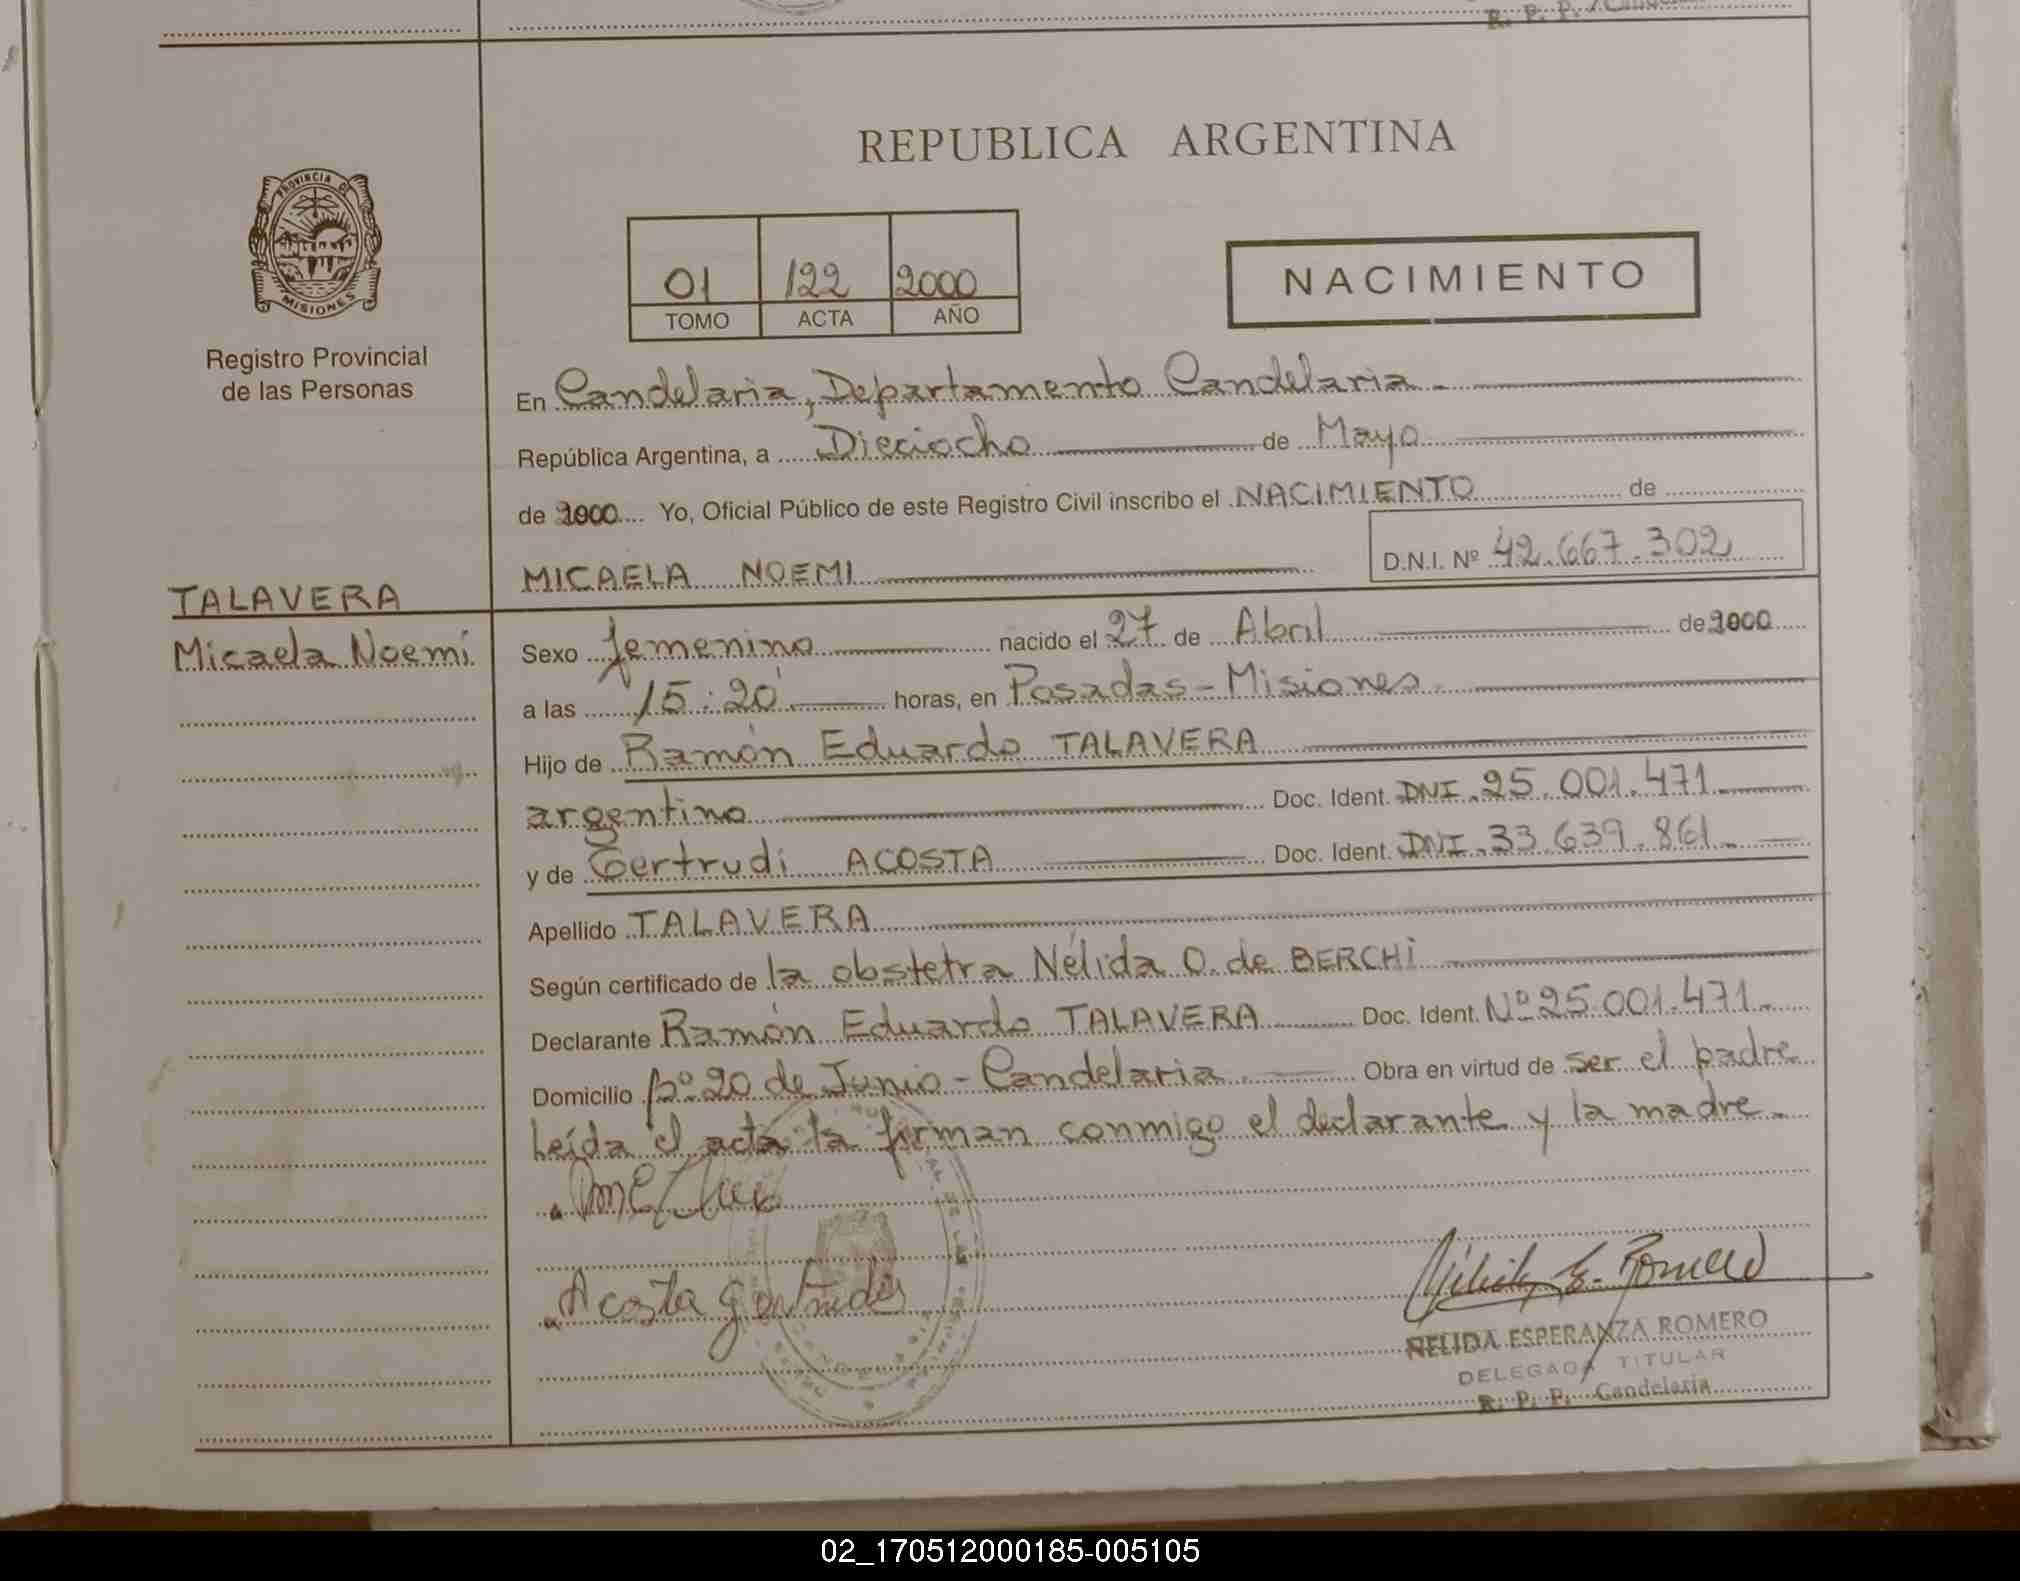 R. P. P.
REPUBLICA ARGENTINA
PROVINCIA DE
MISIONES
Registro Provincial
de las Personas
01 122 2000
TOMO ACTA AÑO
NACIMIENTO
En Candelaria, Departamento Candelaria
República Argentina, a Dieciocho de Mayo
de 2000 Yo, Oficial Público de este Registro Civil inscribo el NACIMIENTO de
MICAELA NOEMI D.N.I. Nº 42.667.302
TALAVERA
Micaela Noemi
Sexo femenino nacido el 27 de Abril de 2000
a las 15:20 horas, en Posadas - Misiones
Hijo de Ramón Eduardo TALAVERA
argentino Doc. Ident. DNI. 25.001.471
y de Gertrudi ACOSTA Doc. Ident. DNI. 33.639.861
Apellido TALAVERA
Según certificado de la obstetra Nélida O. de BERCHI
Declarante Ramón Eduardo TALAVERA Doc. Ident. Nº 25.001.471
Domicilio Bº 20 de Junio - Candelaria Obra en virtud de ser el padre
Leída el acta la firman conmigo el declarante y la madre
Acosta Gertrudis
NELIDA ESPERANZA ROMERO
DELEGADA TITULAR
R. P. P. Candelaria
02_170512000185-005105